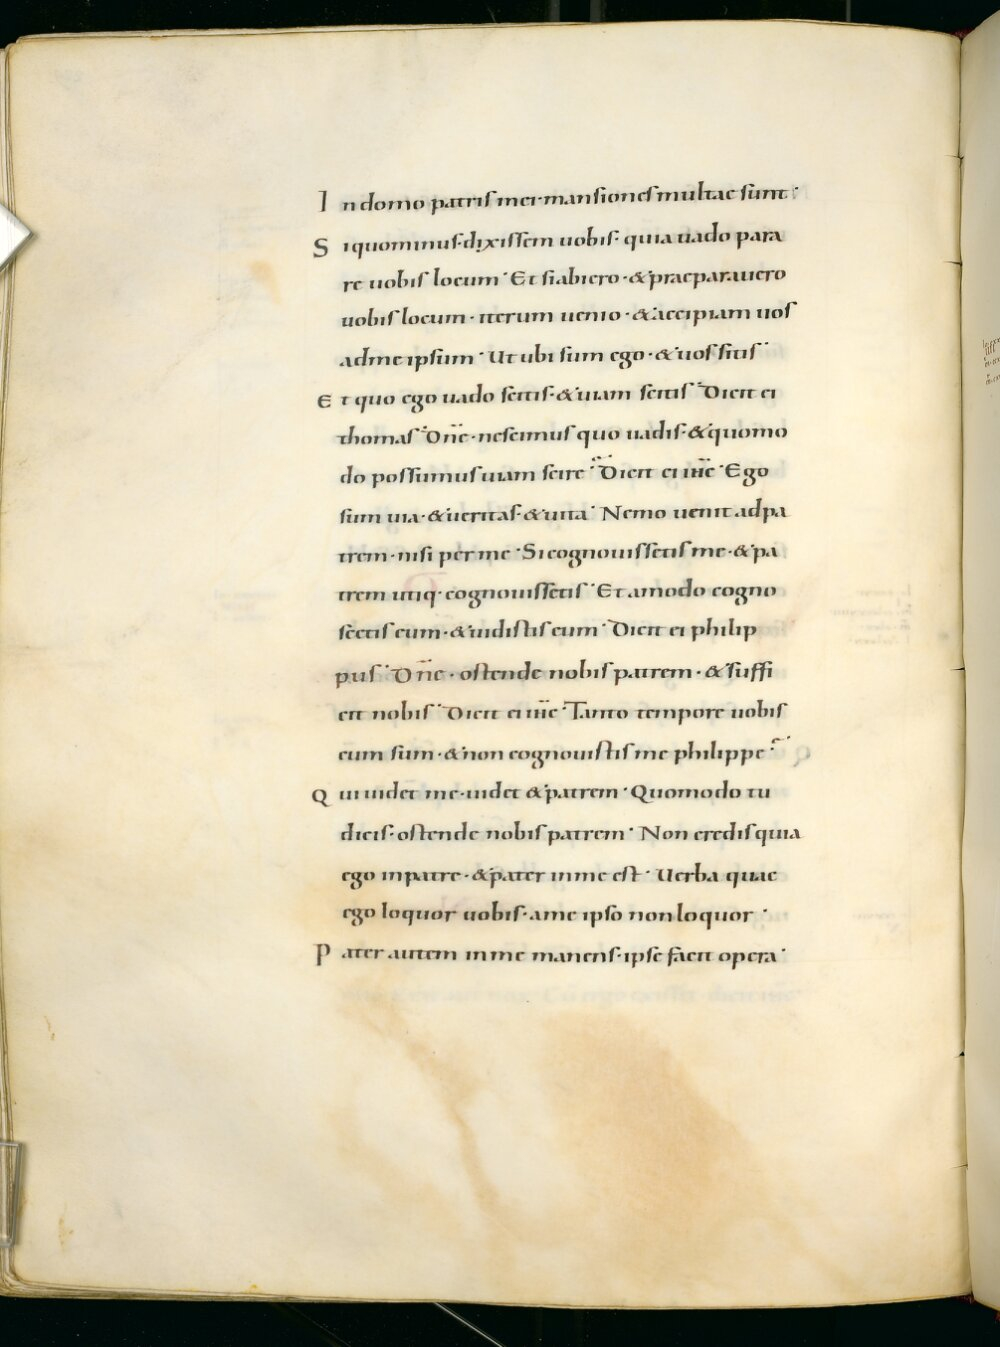 In domo patris mei· mansiones multae sunt·
Si quominus· dixissem uobis· quia uado para
re uobis locum· Et si abiero· & praeparauero
uobis locum· iterum uenio· & accipiam uos
ad me ipsum· Ut ubi sum ego· & uos sitis·
Et quo ego uado scitis· & uiam scitis· Dicit ei
thomas· Dñe· nescimus quo uadis· & quomo
do possumus uiam scire· Dicit ei ihc· Ego
sum uia· & ueritas· & uita· Nemo uenit ad pa
trem· nisi per me· Si cognouissetis me· & pa
trem utiq· cognouissetis· Et amodo cogno
scetis eum· & uidistis eum· Dicit ei philip
pus· Dñe· ostende nobis patrem· & suffi
cit nobis· Dicit ei ihc· Tanto tempore uobis
cum sum· & non cognouistis me philippe·
Qui uidet me· uidet & patrem· Quomodo tu
dicis· ostende nobis patrem· Non credis quia
ego in patre· & pater in me est· Uerba quae
ego loquor uobis· a me ipso non loquor·
Pater autem in me manens· ipse facit opera·